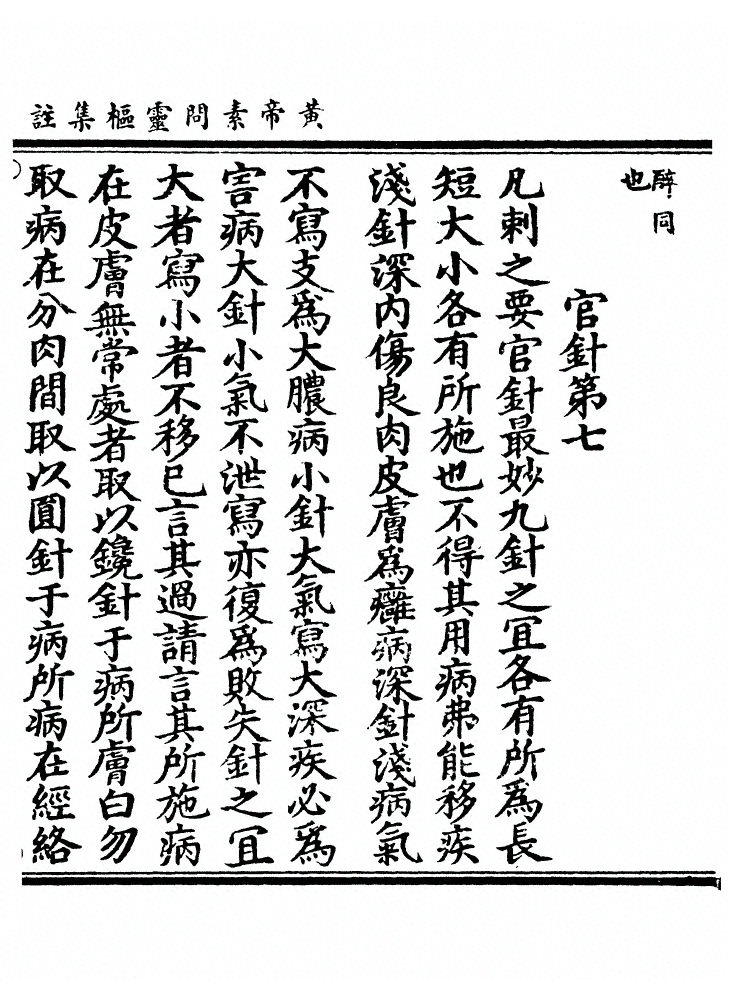 黃帝素問靈樞集註
辤同
也
官針第七
凡刺之要官針最妙九針之冝各有所爲長
短大小各有所施也不得其用病弗能移疾
淺針深内傷良肉皮膚爲癰病深針淺病氣
不寫支爲大膿病小針大氣寫大深疾必爲
害病大針小氣不泄寫亦復爲敗失針之冝
大者寫小者不移已言其過請言其所施病
在皮膚無常處者取以鑱針于病所膚白勿
取病在分肉間取以圓針于病所病在經絡